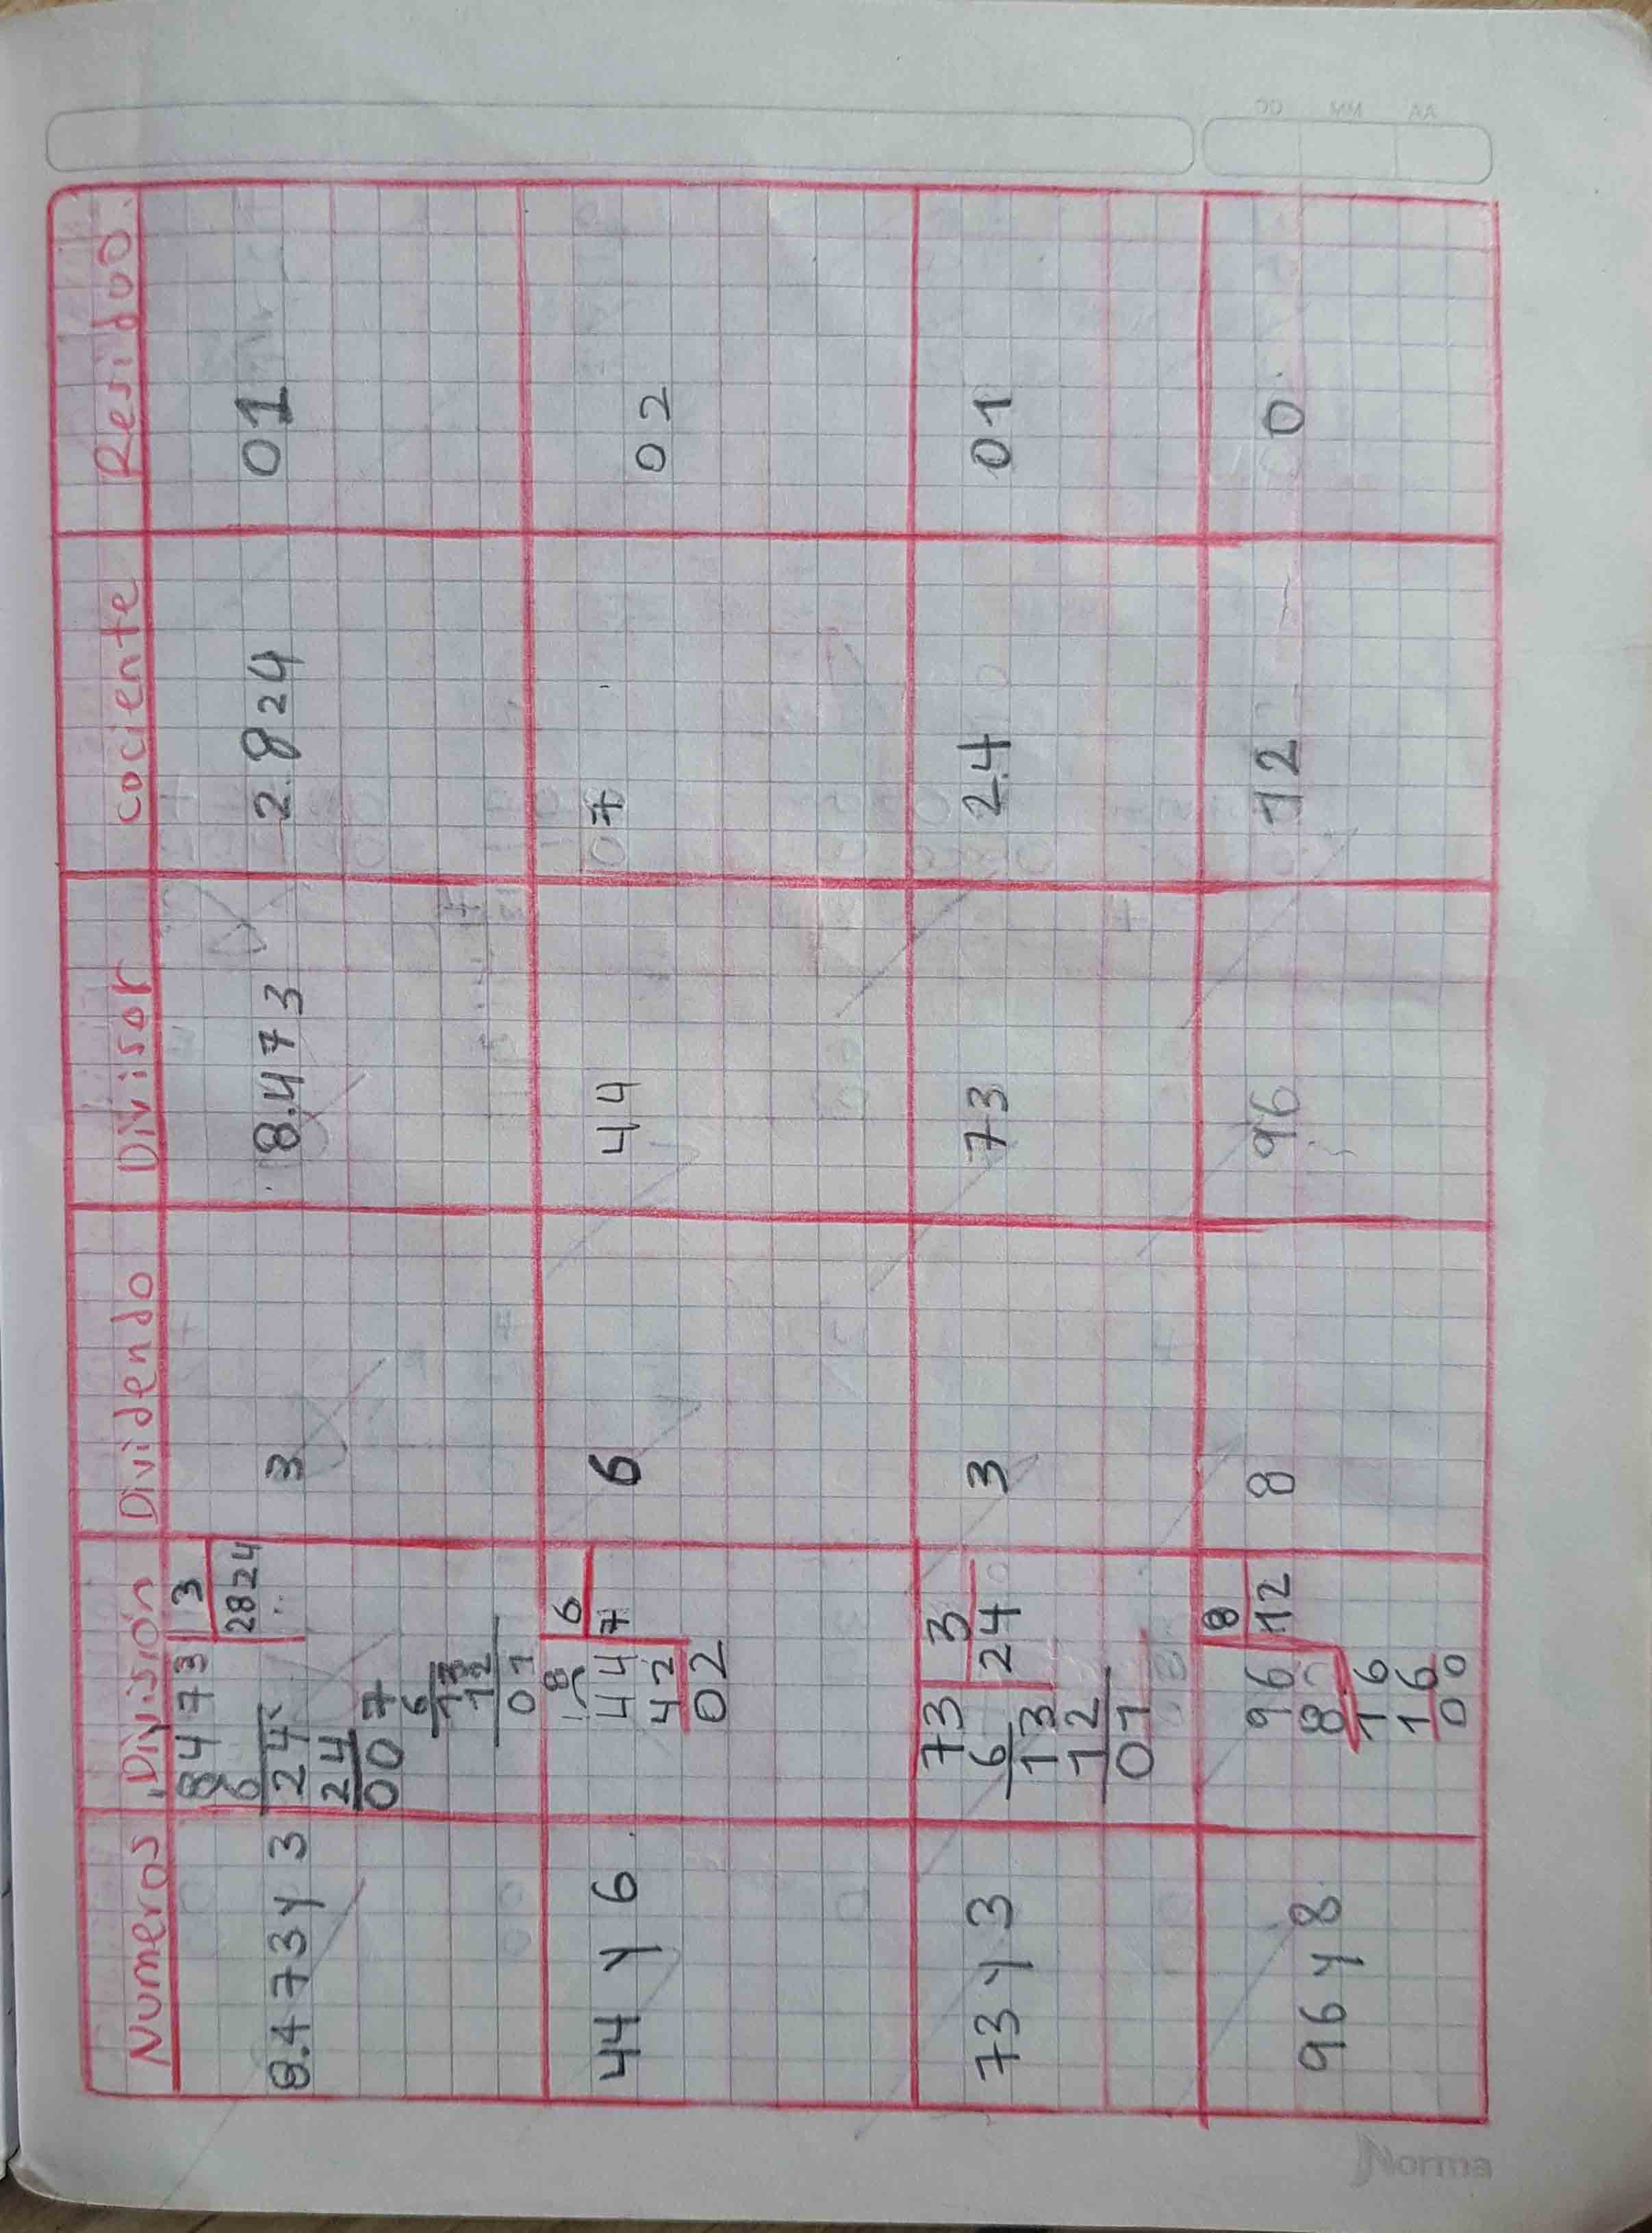 Numeros División Dividendo Divisor cociente Residuo
8.473 y 3
8473 3
6 2824
24
24
007
6
13
12
01
3
8.473
2.824
01
44 y 6
44 6
42 7
02
6
44
07
02
73 y 3
73 3
6 24
13
12
01
3
73
24
01
96 y 8
96 8
8 112
16
16
00
8
96
12
0
Norma